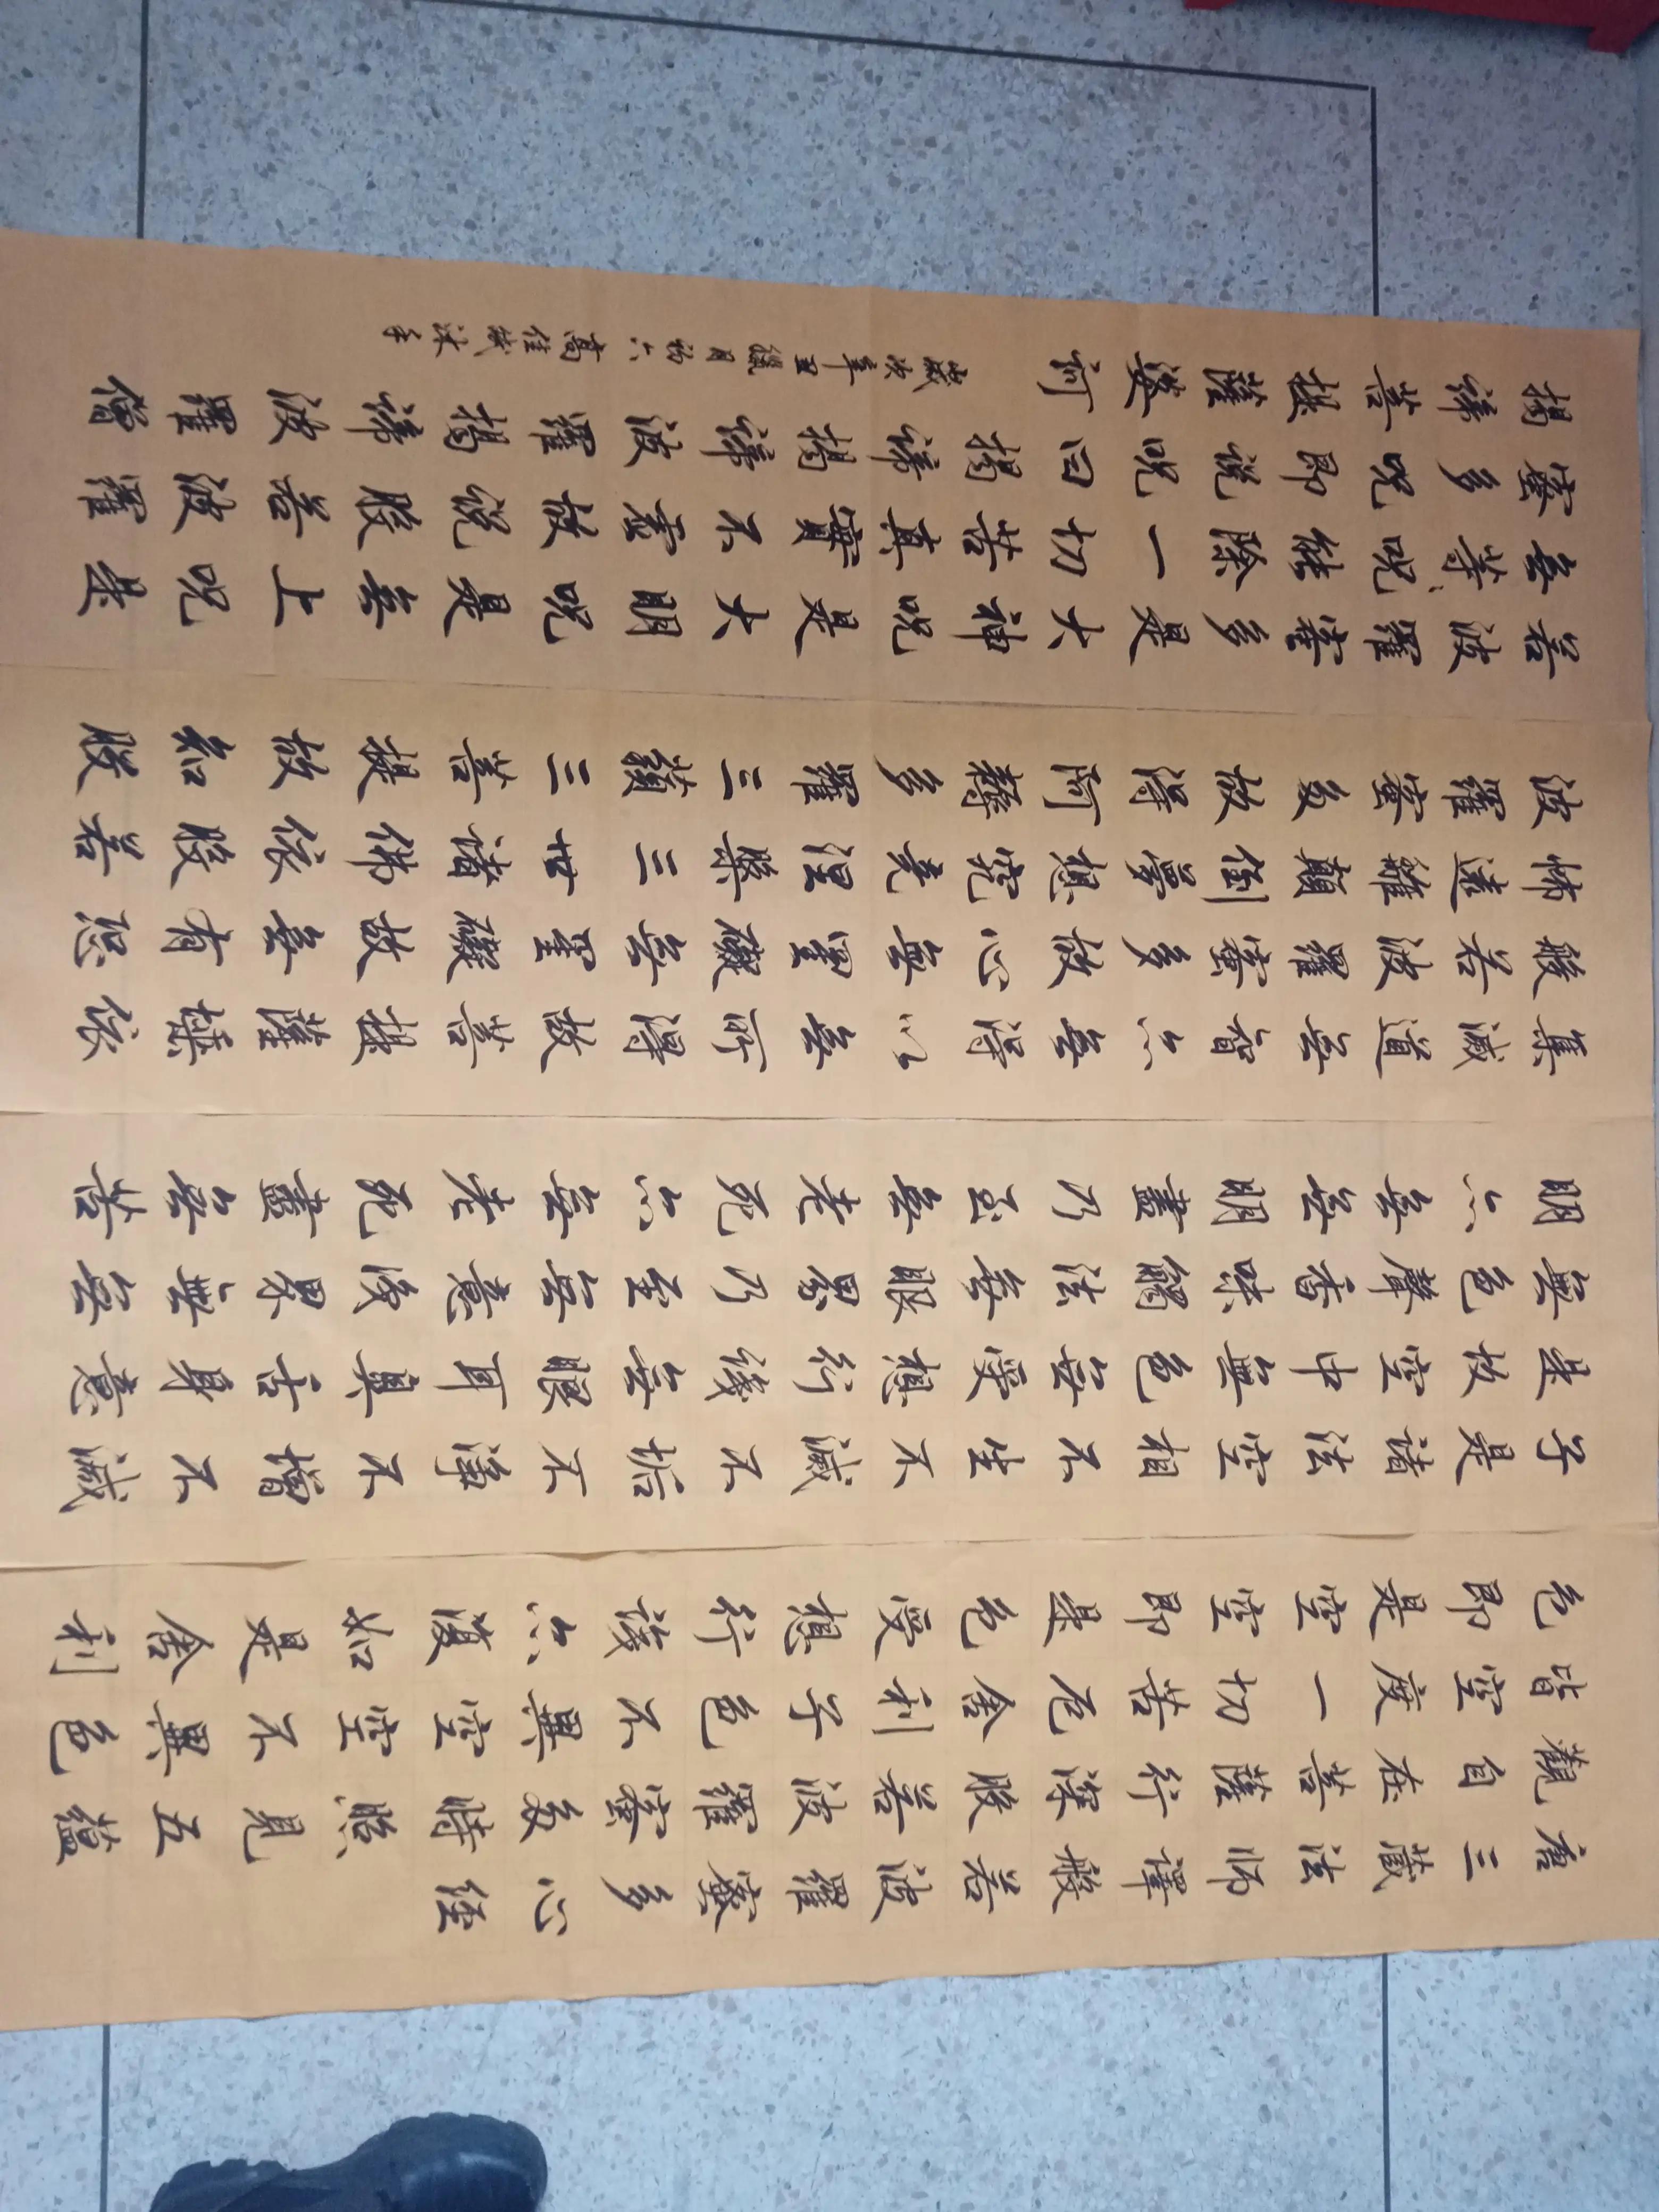 唐三藏法師譯般若波羅蜜多心經
觀自在菩薩行深般若波羅蜜多時照見五蘊
皆空度一切苦厄舍利子色不異空空不異色
色即是空空即是色受想行識亦復如是舍利
子是諸法空相不生不滅不垢不淨不增不減
是故空中無色無受想行識無眼耳鼻舌身意
無色聲香味觸法無眼界乃至無意識界無無
明亦無無明盡乃至無老死亦無老死盡無苦
集滅道無智亦無得以無所得故菩提薩埵依
般若波羅蜜多故心無罣礙無罣礙故無有恐
怖遠離顛倒夢想究竟涅槃三世諸佛依般若
波羅蜜多故得阿耨多羅三藐三菩提故知般
若波羅蜜多是大神呪是大明呪是無上呪是
無等々呪能除一切苦真實不虛故說般若波羅
蜜多呪即說呪曰揭諦揭諦波羅揭諦波羅僧
揭諦菩提薩婆訶
歲次辛丑臘月初六